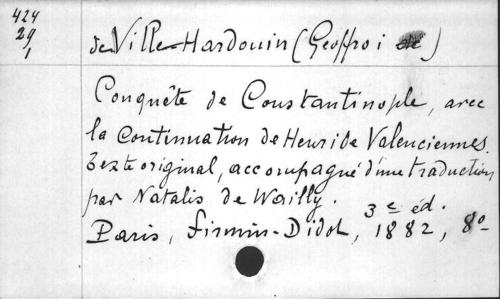 424
29
1
de Ville-Hardouin (Geoffroi de)
Conquête de Constantinople, avec
la Continuation de Henri de Valenciennes.
Texte original, accompagné d'une traduction
par Natalis de Wailly.
3e éd.
Paris, Firmin-Didot, 1882, 8o